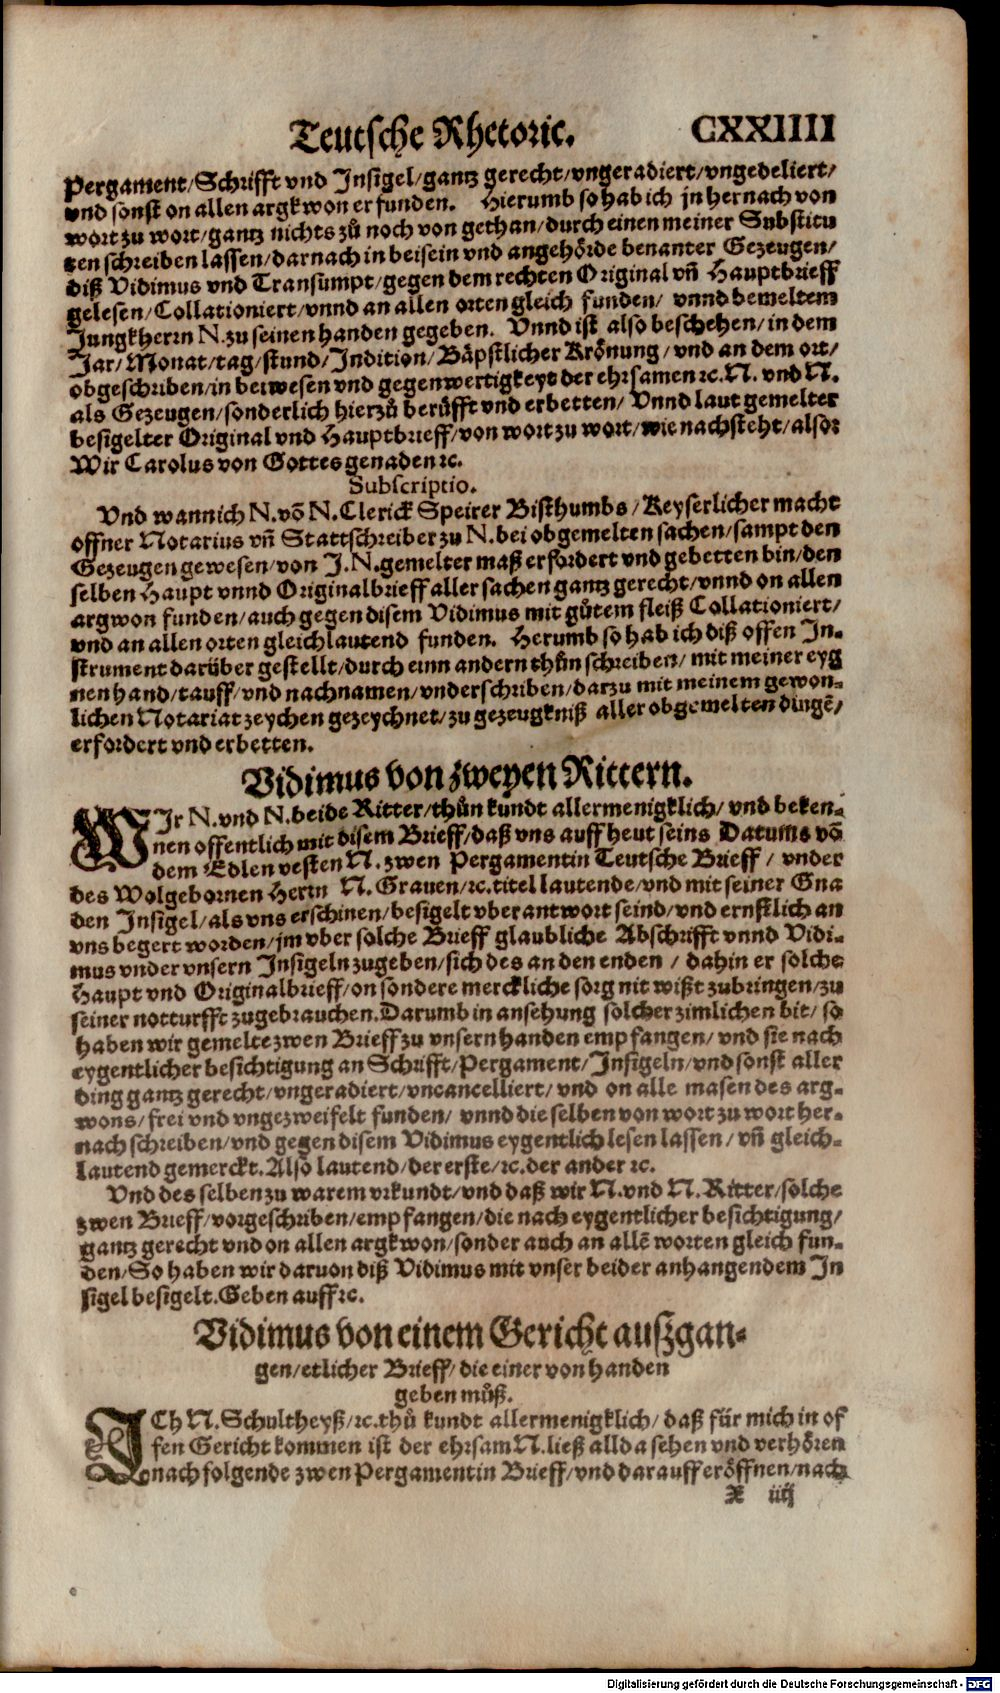 Teutsche Rhetoric. CXXIIII
Pergament/Schrifft vnd Insigel/gantz gerecht/vngeradiert/vngedeliert/
vnd sonst on allen argkwon erfunden. Hierumb so hab ich jn hernach von
wort zu wort/gantz nichts zů noch von gethan/durch einen meiner Substitu
ten schreiben lassen/darnach in beisein vnd angehörde benanter Gezeugen/
diß Vidimus vnd Transumpt/gegen dem rechten Original vñ Hauptbrieff
gelesen/Collationiert/vnnd an allen orten gleich funden/ vnnd bemeltem
Jungkherrn N. zu seinen handen gegeben. Vnnd ist also beschehen/in dem
Jar/Monat/tag/stund/Indition/Bäpstlicher Krönung/vnd an dem ort/
obgeschriben/in beiwesen vnd gegenwertigkeyt der ehrsamen ꝛc. N. vnd N.
als Gezeugen/sonderlich hierzů berüfft vnd erbetten/ Vnnd laut gemelter
besigelter Original vnd Hauptbrieff/von wort zu wort/wie nachsteht/also:
Wir Carolus von Gottes genaden ꝛc.
Subscriptio.
Vnd wann ich N. võ N. Clerick Speirer Bisthumbs/Keyserlicher macht
offner Notarius vñ Stattschreiber zu N. bei obgemelten sachen/sampt den
Gezeugen gewesen/von J. N. gemelter maß erfordert vnd gebetten bin/den
selben Haupt vnnd Originalbrieff aller sachen gantz gerecht/vnnd on allen
argwon funden/auch gegen disem Vidimus mit gůtem fleiß Collationiert/
vnd an allen orten gleichlautend funden. Herumb so hab ich diß offen In-
strument darüber gestellt/durch einn andern thůn schreiben/ mit meiner eyg
nen hand/tauff/vnd nachnamen/vnderschriben/darzu mit meinem gewon-
lichen Notariat zeychen gezeychnet/zu gezeugkniß aller obgemelten dingẽ/
erfordert vnd erbetten.
Vidimus von zweyen Rittern.
WIr N. vnd N. beide Ritter/thůn kundt allermenigklich/ vnd beken-
nen offentlich mit disem Brieff/daß vns auff heut seins Datums võ
dem Edlen vesten N. zwen Pergamentin Teutsche Brieff/ vnder
des Wolgebornen Herrn N. Grauen/ꝛc. titel lautende/vnd mit seiner Gna
den Insigel/als vns erschinen/besigelt vberantwort seind/vnd ernstlich an
vns begert worden/jm vber solche Brieff glaubliche Abschrifft vnnd Vidi-
mus vnder vnsern Insigeln zugeben/sich des an den enden/ dahin er solche
Haupt vnd Originalbrieff/on sondere merckliche sorg nit wißt zubringen/zu
seiner notturfft zugebrauchen. Darumb in ansehung solcher zimlichen bit/ so
haben wir gemelte zwen Brieff zu vnsern handen empfangen/ vnd sie nach
eygentlicher besichtigung an Schrifft/Pergament/Insigeln/vnd sonst aller
ding gantz gerecht/vngeradiert/vncancelliert/ vnd on alle masen des arg-
wons/frei vnd vngezweifelt funden/ vnnd die selben von wort zu wort her-
nach schreiben/vnd gegen disem Vidimus eygentlich lesen lassen/ vñ gleich-
lautend gemerckt. Also lautend/der erste/ꝛc. der ander ꝛc.
Vnd des selben zu warem vrkundt/vnd daß wir N. vnd N. Ritter/solche
zwen Brieff/vorgeschriben/empfangen/die nach eygentlicher besichtigung/
gantz gerecht vnd on allen argkwon/sonder auch an allẽ worten gleich fun-
den/So haben wir daruon diß Vidimus mit vnser beider anhangendem In
sigel besigelt. Geben auff ꝛc.
Vidimus von einem Gericht auszgan-
gen/etlicher Brieff/die einer von handen
geben můß.
ICh N. Schultheyß/ꝛc. thů kundt allermenigklich/ daß für mich in of
fen Gericht kommen ist der ehrsam N. ließ allda sehen vnd verhören
nachfolgende zwen Pergamentin Brieff/vnd darauff eröffnen/nach
X iiij
Digitalisierung gefördert durch die Deutsche Forschungsgemeinschaft - DFG